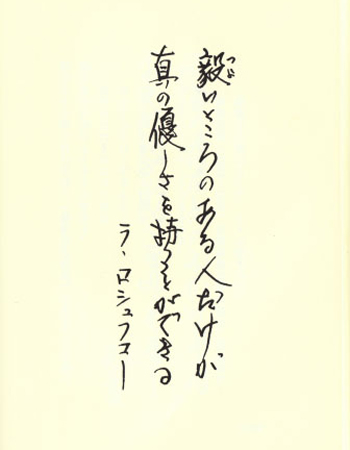 毅いところのある人だけが
つよ
真の優しさを持つことができる
ラ・ロシュフコー